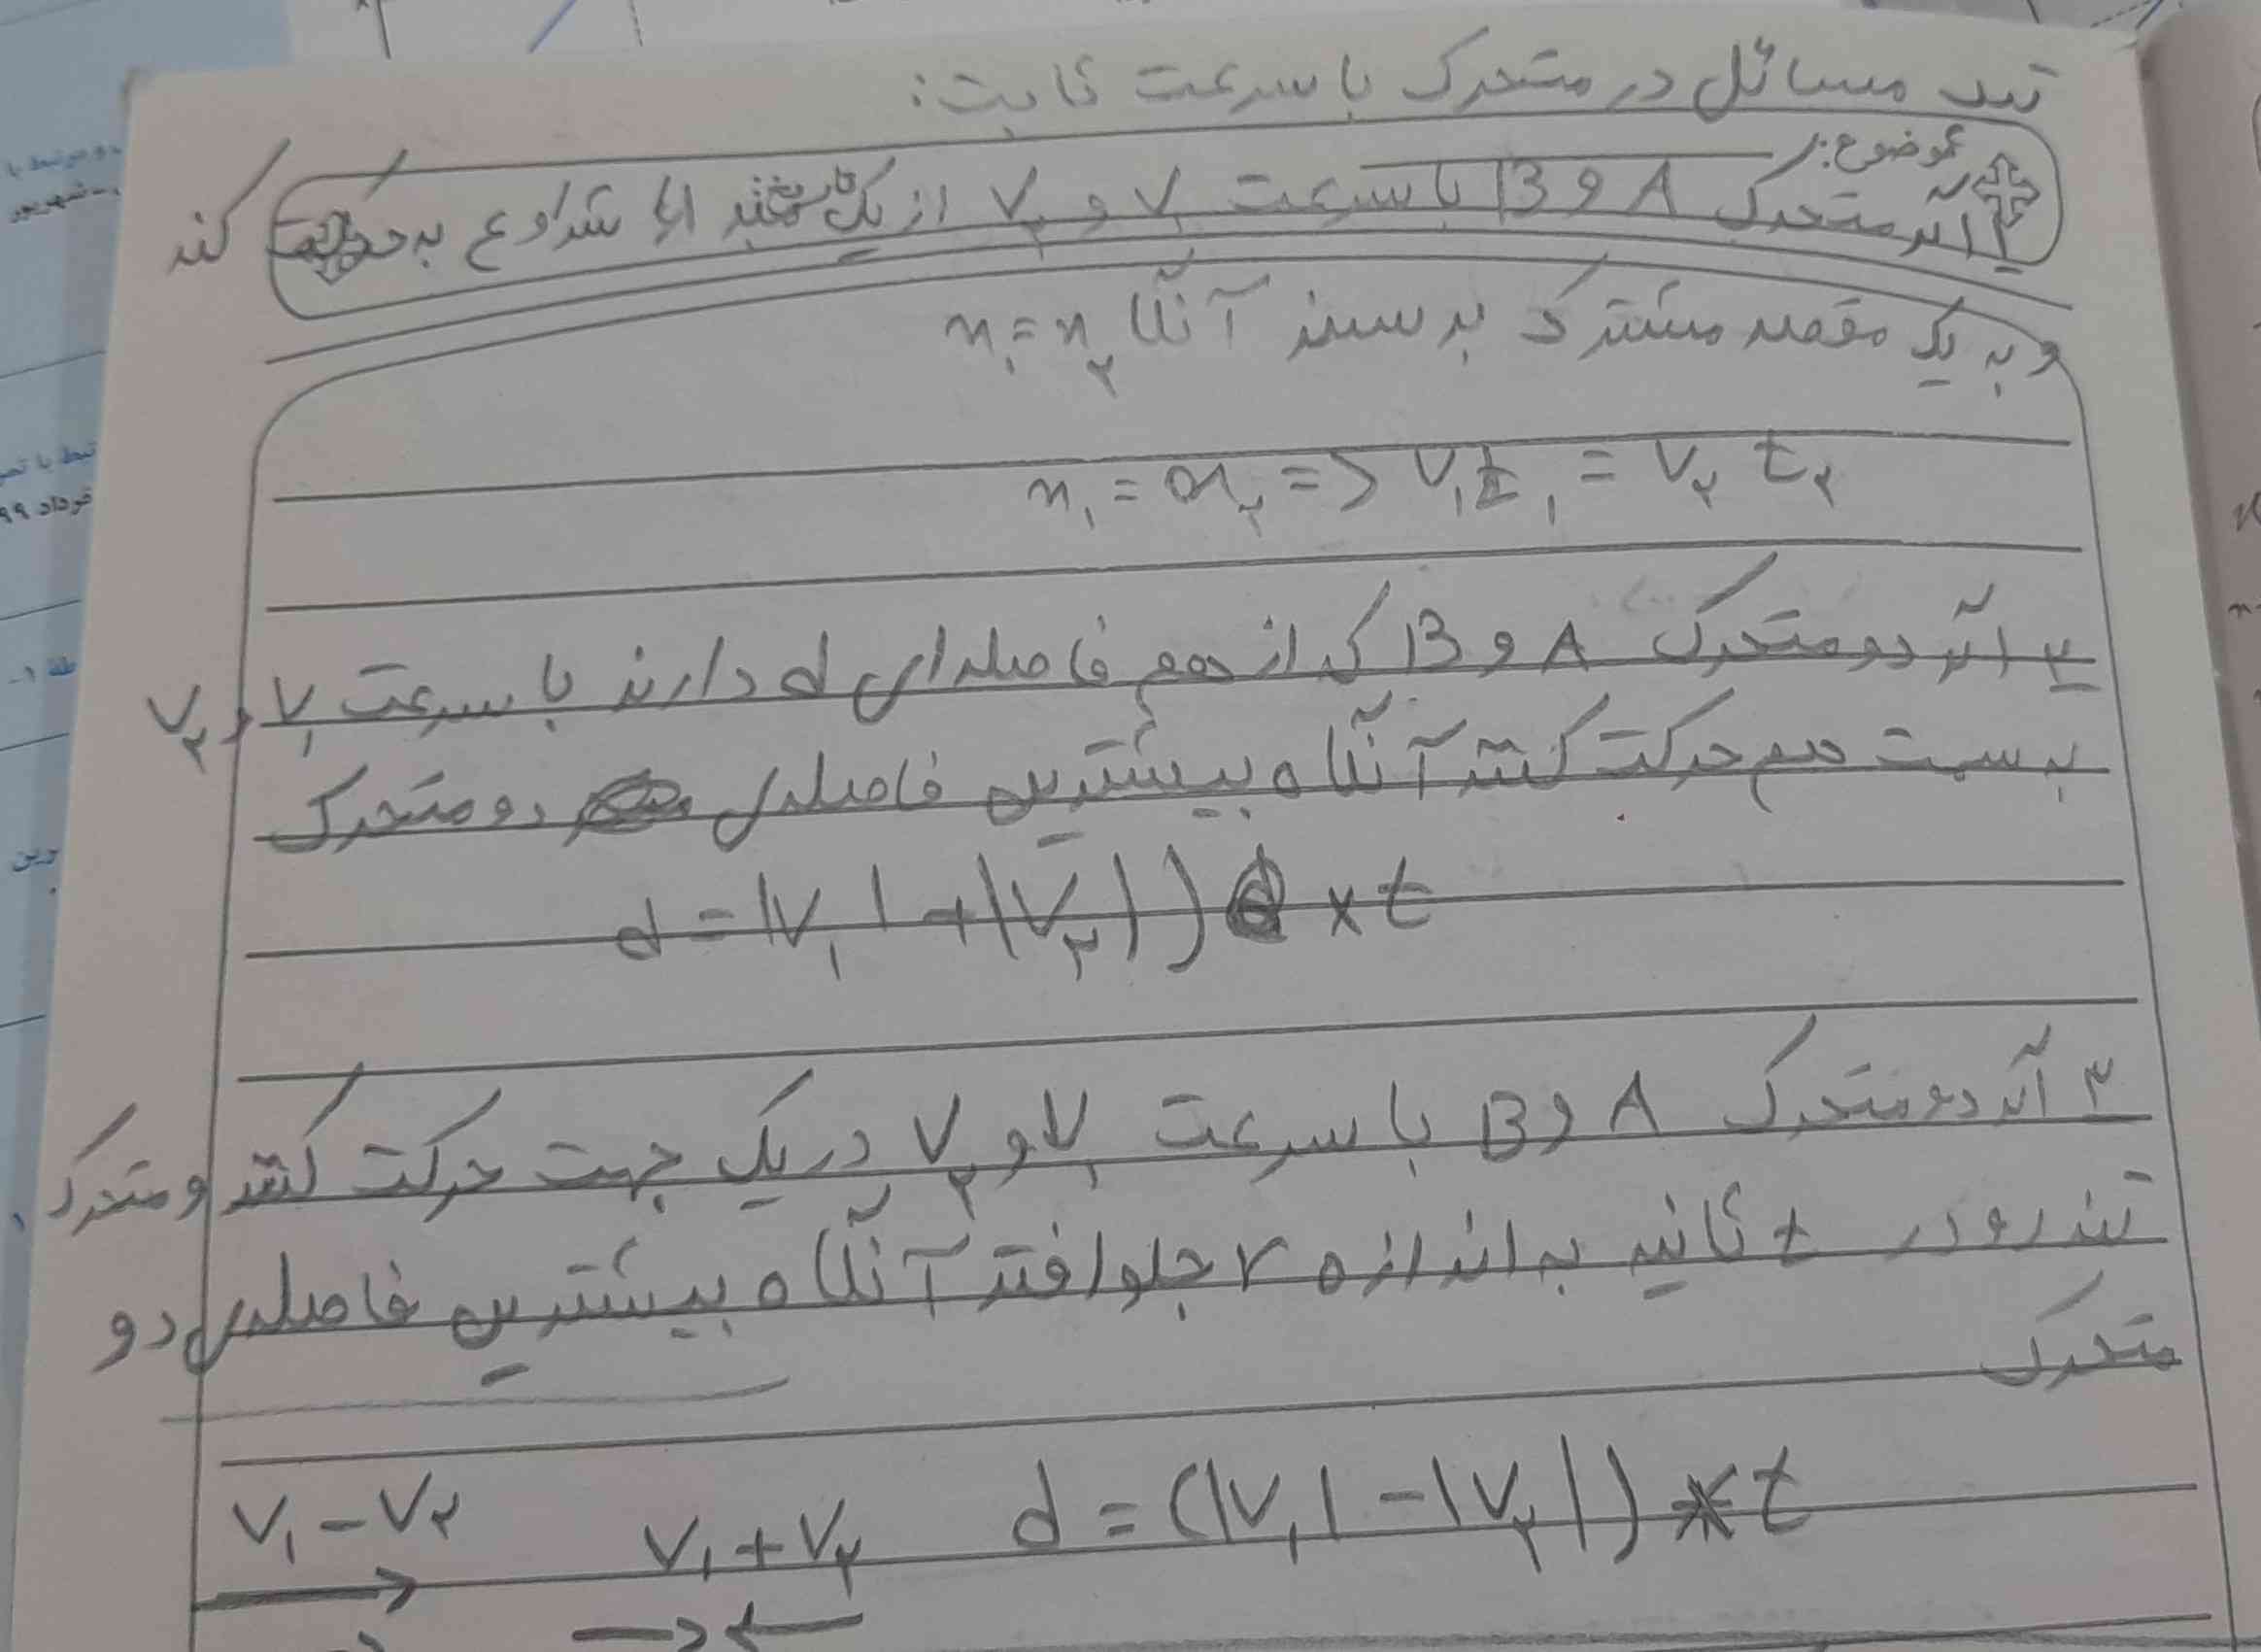 تیپ مسائل در متحرک با سرعت ثابت:
موضوع:
۱ اگر متحرک A و B با سرعت V₁ و V₂ از یک شروع به حرکت کند
و به یک مقصد مشترک برسند آنگاه x₁=x₂
x₁ = x₂ => V₁t₁ = V₂ t₂
۲ اگر دو متحرک A و B که از هم فاصله‌ای d دارند با سرعت V₁ و V₂
به سمت هم حرکت کنند آنگاه بیشترین فاصله‌ی دو متحرک
d = |V₁| + |V₂|) × t
۳ اگر دو متحرک A و B با سرعت V₁ و V₂ در یک جهت حرکت کنند و متحرک
تندرو در t ثانیه به اندازه r جلو افتد آنگاه بیشترین فاصله‌ی دو
متحرک
d = (|V₁| - |V₂|) × t
V₁ + V₂
V₁ - V₂